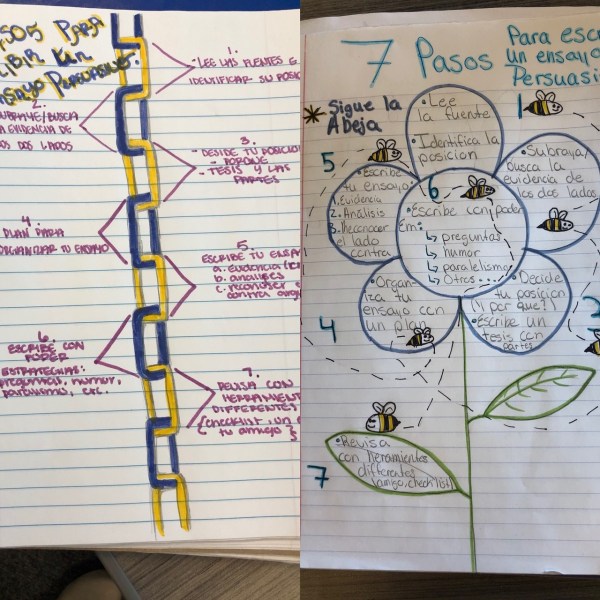 PASOS PARA
ESCRIBIR UN
ENSAYO PERSUASIVO:
1.
-LEE LAS FUENTES E
IDENTIFICAR SU POSIC
2.
SUBRAYE/BUSCA
LA EVIDENCIA DE
LOS DOS LADOS
3.
-DESIDE TU POSICION
- PORQUE
- TESIS Y LAS
PARTES
4.
PLAN PARA
ORGANIZAR TU ENSAYO
5.
ESCRIBE TU ENSAYO
a. evidencia
b. analyses
c.
contra
6.
ESCRIBE CON
PODER
ESTRATEGIAS:
preguntas, humor,
paralelismo, etc.
7.
REVISA CON
HERRAMIENT
DIFFERENTES
(checklist, un
tu amigo)
7 Pasos
Para escr
un ensayo
Persuasi
* Sigue la
Abeja
1
• Lee
la fuente
• Identifica la
posicion
• Subraya/
busca la
evidencia de
los dos lados
2
• Decide
tu posicion
(y por que?)
• Escribe un
tesis con
partes
4
• Organ-
iza tu
ensayo con
un plan
5
• Escribe
tu ensayo:
1. Evidencia
2. Análisis
3. Reconocer
el lado
contra
6
• Escribe con poder
Em:
↳ preguntas
↳ humor
↳ paralelismo
↳ Otros...
7
• Revisa
con heramientas
differentes
(amigo, checklist)